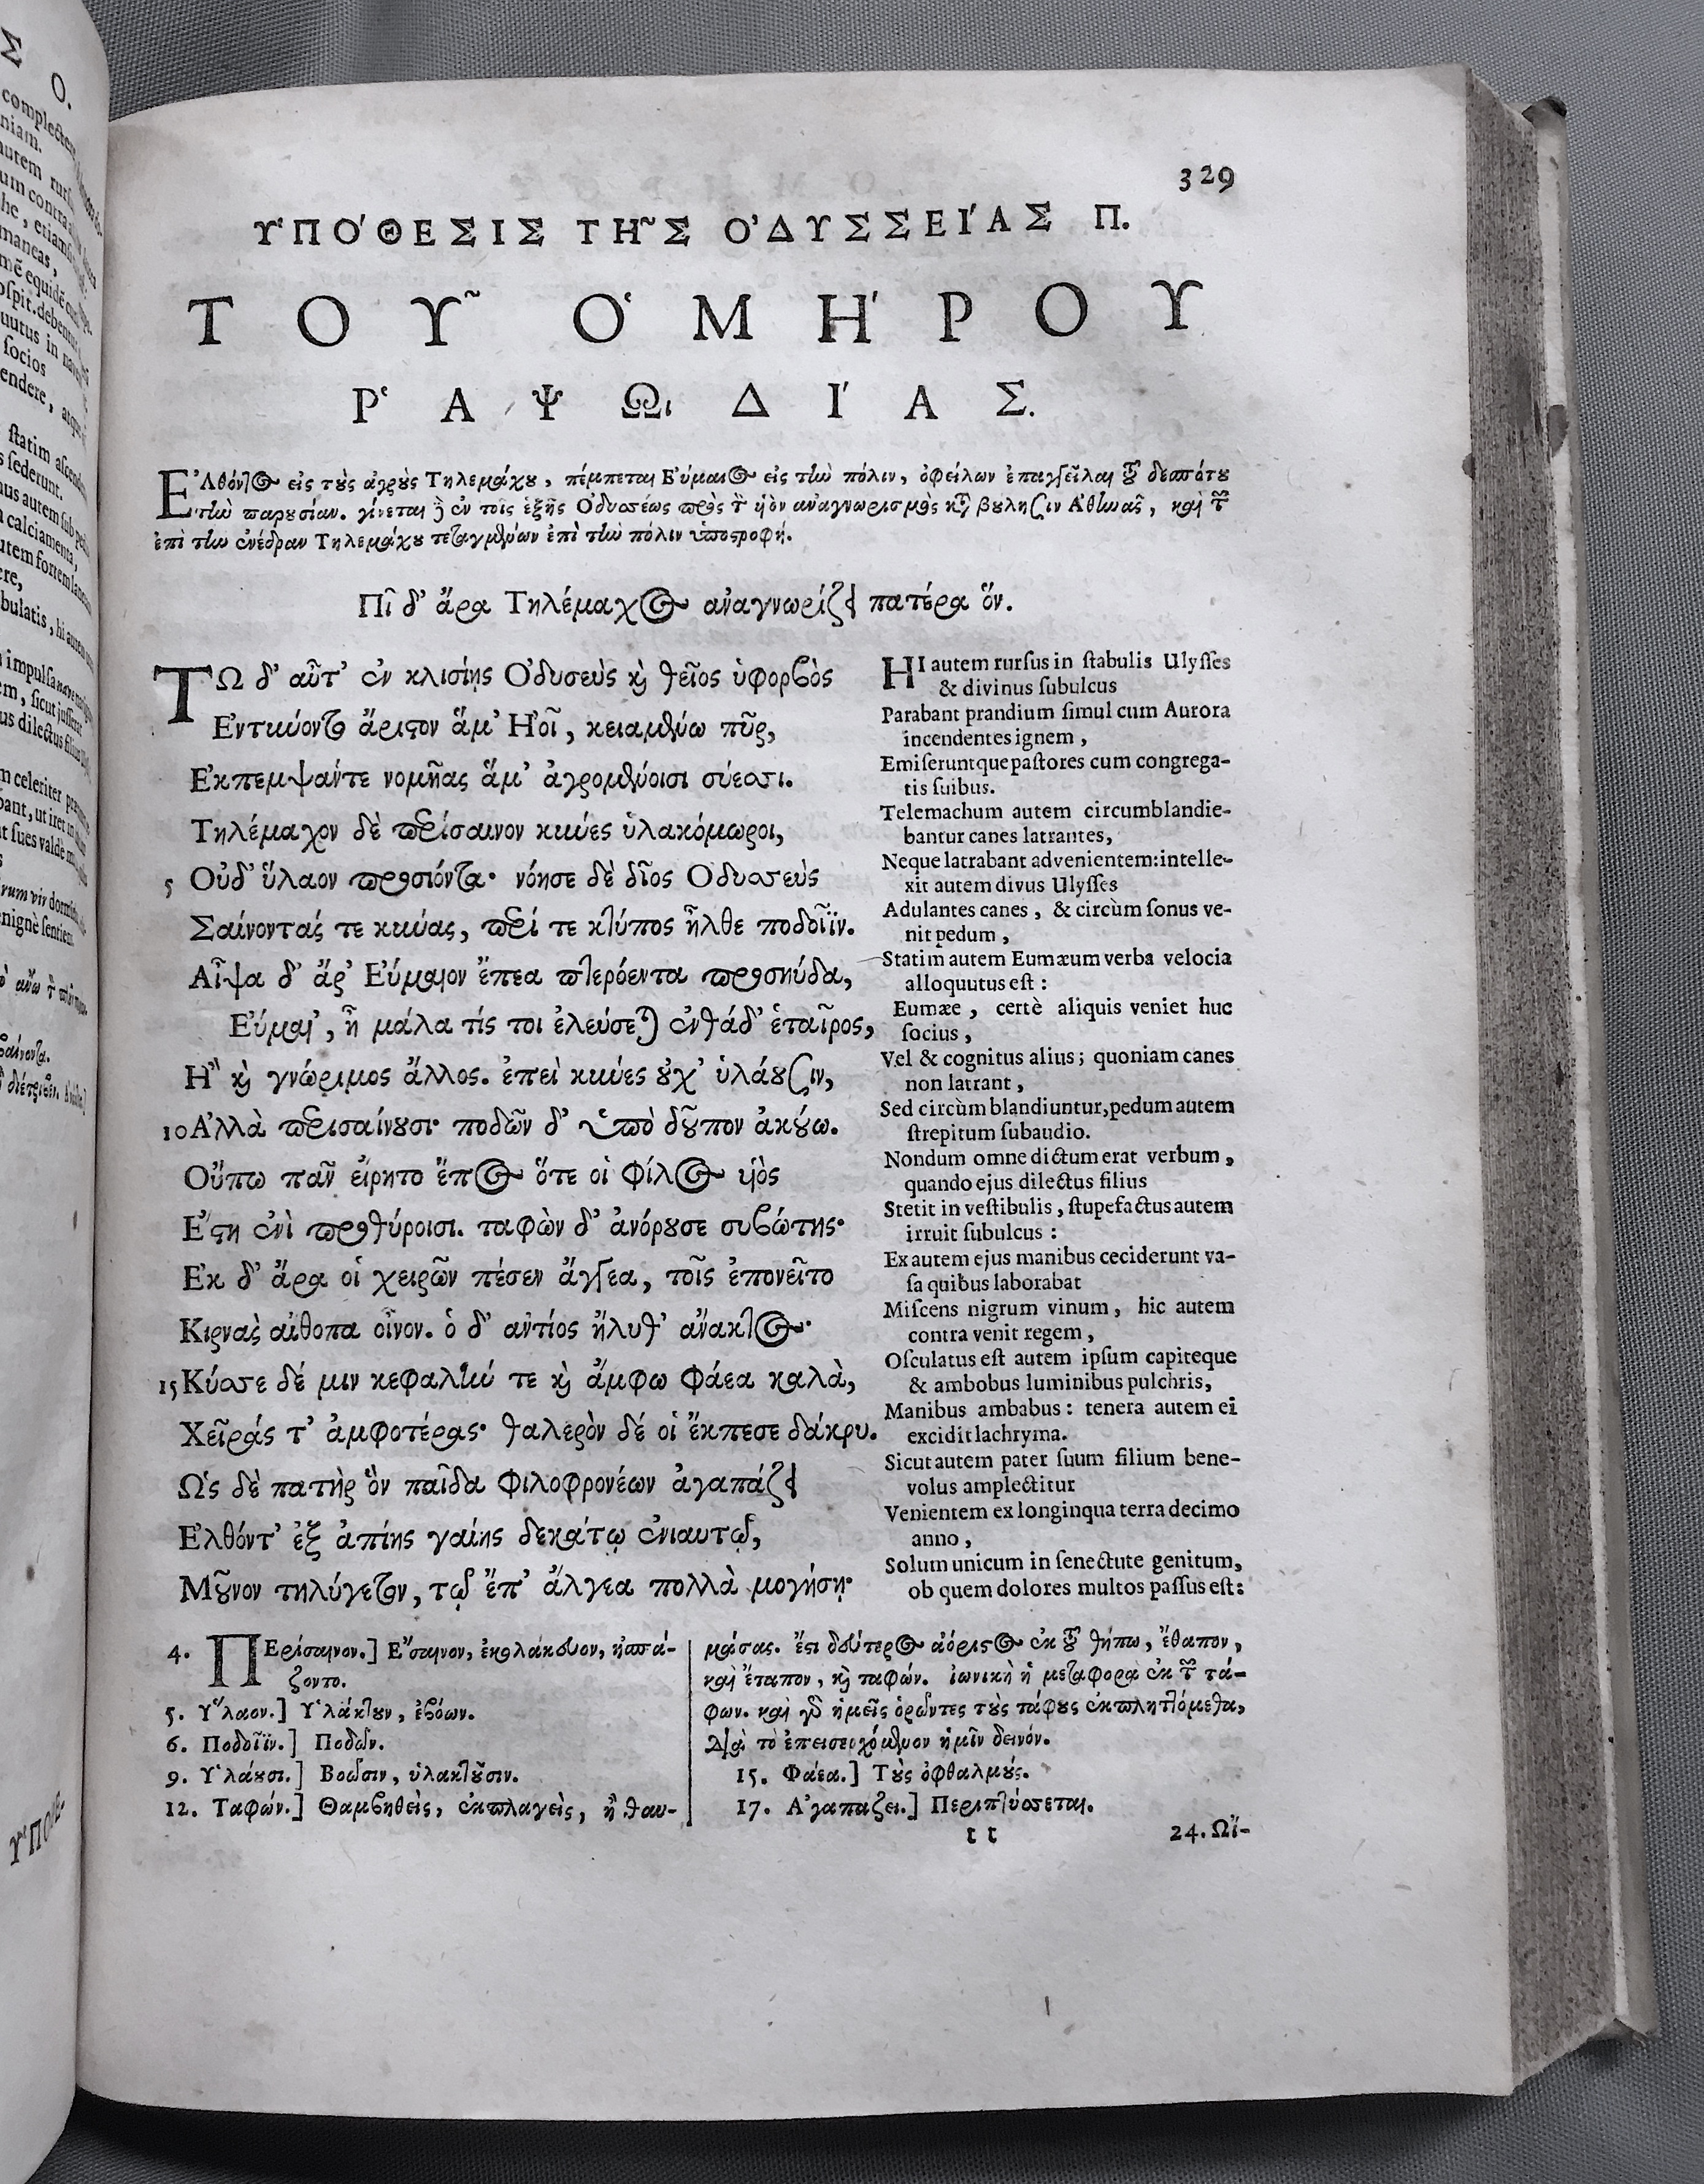 329
ΥΠΟΘΕΣΙΣ ΤΗΣ ΟΔΥΣΣΕΙΑΣ Π.
ΤΟΥ͂ ὉΜΉΡΟΥ
ῬΑΨΩΙΔΊΑΣ.
Ἐλθόντος εἰς τοὺς ἀγροὺς Τηλεμάχου, πέμπεται Εὔμαιος εἰς τὴν πόλιν, ὀφείλων ἐπαγγεῖλαι τοῦ δεσπότου
τὴν παρουσίαν. γίνεται δὲ ἐν τοῖς ἑξῆς Ὀδυσσέως πρὸς τὸν υἱὸν ἀναγνωρισμὸς κατὰ βούλησιν Ἀθηνᾶς, καὶ τῶν
ἐπὶ τὴν ἐνέδραν Τηλεμάχου τεταγμένων ἐπὶ τὴν πόλιν ὑποστροφή.
Πῖ δ' ἄρα Τηλέμαχος ἀναγνωρίζει πατέρα ὅν.
ΤΩ δ' αὖτ' ἐν κλισίῃς Ὀδυσεὺς καὶ θεῖος ὑφορβὸς
Ἐντύνοντο ἄριστον ἅμ' Ἠοῖ, κειαμένω πῦρ,
Ἐκπεμψάντε νομῆας ἅμ' ἀγρομένοισι σύεσσι.
Τηλέμαχον δὲ περίσαινον κύνες ὑλακόμωροι,
5 Οὐδ' ὕλαον προσιόντα· νόησε δὲ δῖος Ὀδυσσεὺς
Σαίνοντάς τε κύνας, περί τε κτύπος ἦλθε ποδοῖϊν.
Αἶψα δ' ἄρ' Εὔμαιον ἔπεα πτερόεντα προσηύδα,
Εὔμαι', ἦ μάλα τίς τοι ἐλεύσεται ἐνθάδ' ἑταῖρος,
Ἢ καὶ γνώριμος ἄλλος. ἐπεὶ κύνες οὐχ' ὑλάουσιν,
10 Ἀλλὰ περισαίνουσι· ποδῶν δ' ὑπὸ δοῦπον ἀκούω.
Οὔπω πᾶν εἴρητο ἔπος ὅτε οἱ φίλος υἱὸς
Ἔστη ἐνὶ προθύροισι. ταφὼν δ' ἀνόρουσε συβώτης·
Ἐκ δ' ἄρα οἱ χειρῶν πέσεν ἄγγεα, τοῖς ἐπονεῖτο
Κιρνὰς αἴθοπα οἶνον. ὁ δ' ἀντίος ἤλυθ' ἄνακτος·
15 Κύσσε δέ μιν κεφαλήν τε καὶ ἄμφω φάεα καλὰ,
Χεῖράς τ' ἀμφοτέρας· θαλερὸν δέ οἱ ἔκπεσε δάκρυ.
Ὡς δὲ πατὴρ ὃν παῖδα φιλοφρονέων ἀγαπάζει
Ἐλθόντ' ἐξ ἀπίης γαίης δεκάτῳ ἐνιαυτῷ,
Μοῦνον τηλύγετον, τῷ ἔπ' ἄλγεα πολλὰ μογήσῃ·
HI autem rursus in stabulis Ulysses
& divinus subulcus
Parabant prandium simul cum Aurora
incendentes ignem,
Emiseruntque pastores cum congrega-
tis suibus.
Telemachum autem circumblandie-
bantur canes latrantes,
Neque latrabant advenientem: intelle-
xit autem divus Ulysses
Adulantes canes, & circùm sonus ve-
nit pedum,
Statim autem Eumæum verba velocia
alloquutus est:
Eumæe, certè aliquis veniet huc
socius,
Vel & cognitus alius; quoniam canes
non latrant,
Sed circùm blandiuntur, pedum autem
strepitum subaudio.
Nondum omne dictum erat verbum,
quando ejus dilectus filius
Stetit in vestibulis, stupefactus autem
irruit subulcus:
Ex autem ejus manibus ceciderunt va-
sa quibus laborabat
Miscens nigrum vinum, hic autem
contra venit regem,
Osculatus est autem ipsum capiteque
& ambobus luminibus pulchris,
Manibus ambabus: tenera autem ei
excidit lachryma.
Sicut autem pater suum filium bene-
volus amplectitur
Venientem ex longinqua terra decimo
anno,
Solum unicum in senectute genitum,
ob quem dolores multos passus est:
4. Περίσαινον.] Ἔσαινον, ἐκολάκευον, ἠσπά-
ζοντο.
5. Ὕλαον.] Ὑλάκτουν, ἐβόων.
6. Ποδοῖϊν.] Ποδῶν.
9. Ὑλάουσι.] Βοῶσιν, ὑλακτοῦσιν.
12. Ταφών.] Θαμβηθεὶς, ἐκπλαγεὶς, ἢ θαυ-
μάσας. ἔστι δεύτερος ἀόριστος ἐκ τοῦ θήπω, ἔθαπον,
καὶ ἔταπον, καὶ ταφών. ἰωνικὴ ἡ μεταφορὰ ἐκ τῶν τά-
φων. καὶ γὰρ ἡμεῖς ὁρῶντες τοὺς τάφους ἐκπληττόμεθα,
διὰ τὸ ἐπεισερχόμενον ἡμῖν δεινόν.
15. Φάεα.] Τοὺς ὀφθαλμούς.
17. Ἀγαπαζει.] Περιπτύσσεται.
tt 24. Ὤϊ-